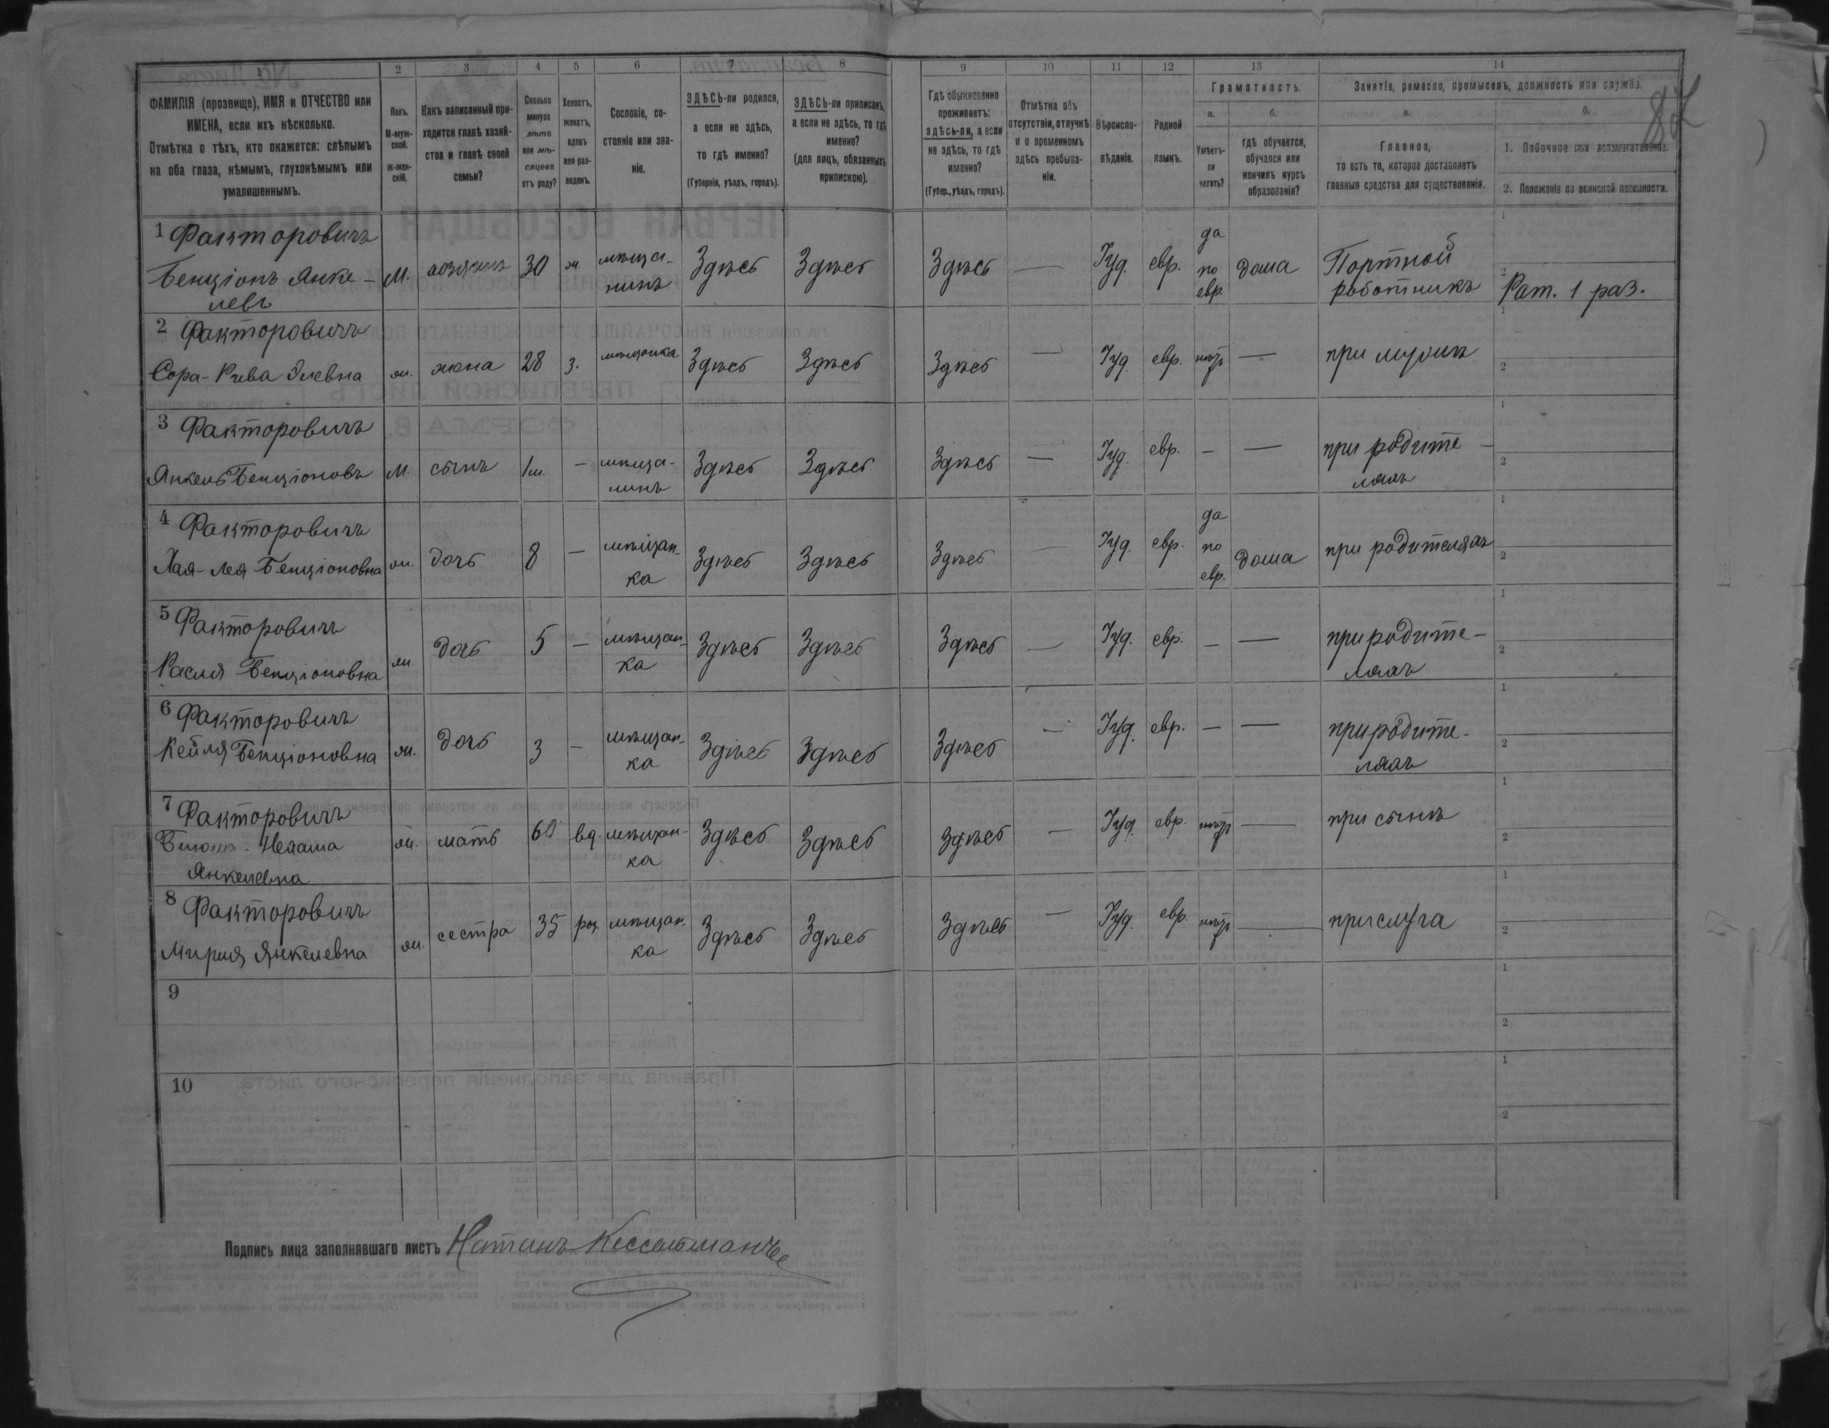 1 2 3 4 5 6 7 8 9 10 11 12 13 14
ФАМИЛІЯ (прозвище), ИМЯ и ОТЧЕСТВО или
ИМЕНА, если ихъ нѣсколько.
Отмѣтка о тѣхъ, кто окажется: слѣпымъ
на оба глаза, нѣмымъ, глухонѣмымъ или
умалишеннымъ.
Полъ.
М-муж-
ской.
ж-жен-
скій.
Какъ записанный при-
ходится главѣ хозяй-
ства и главѣ своей
семьи?
Сколько
минуло
лѣтъ
или мѣ-
сяцевъ
отъ роду?
Холостъ,
женатъ,
вдовъ
или раз-
веденъ.
Сословіе, со-
стояніе или зва-
ніе.
ЗДѢСЬ-ли родился,
а если не здѣсь,
то гдѣ именно?
(Губернія, уѣздъ, городъ).
ЗДѢСЬ-ли приписанъ,
а если не здѣсь, то гдѣ
именно?
(для лицъ, обязанныхъ
припискою).
Гдѣ обыкновенно
проживаетъ:
здѣсь-ли, а если
не здѣсь, то гдѣ
именно?
(Губер., уѣздъ, городъ).
Отмѣтка объ
отсутствіи, отлучкѣ
и о временномъ
здѣсь пребыва-
ніи.
Вѣроиспо-
вѣданіе.
Родной
языкъ.
Грамотность.
а.
Умѣетъ-
ли
читать?
б.
гдѣ обучается,
обучался или
кончилъ курсъ
образованія?
Занятіе, ремесло, промыселъ, должность или служба.
а.
Главное,
то есть то, которое доставляетъ
главныя средства для существованія.
б.
1. Побочное или вспомогательное.
2. Положеніе по воинской повинности.
87
1 Факторовичъ
Бенціонъ Янке-
левъ
М. хозяинъ 30 ж. мѣща-
нинъ
Здѣсь Здѣсь Здѣсь — Іуд. евр.
да
по
евр.
дома
Портной
работникъ
Рат. 1 раз.
2 Факторовичъ
Сора-Рива
ж. жена 28 з. мѣщанка Здѣсь Здѣсь Здѣсь — Іуд. евр. нѣтъ — при мужѣ
3 Факторовичъ
Янкель Бенціоновъ
М. сынъ 1м. — мѣща-
нинъ
Здѣсь Здѣсь Здѣсь — Іуд. евр. — — при родите-
ляхъ
4 Факторовичъ
Хая-Лея Бенціоновна
ж. дочь 8 — мѣщан-
ка
Здѣсь Здѣсь Здѣсь — Іуд. евр.
да
по
евр.
дома
при родителяхъ
5 Факторовичъ
Расля Бенціоновна
ж. дочь 5 — мѣщан-
ка
Здѣсь Здѣсь Здѣсь — Іуд. евр. — — при родите-
ляхъ
6 Факторовичъ
Кейля Бенціоновна
ж. дочь 3 — мѣщан-
ка
Здѣсь Здѣсь Здѣсь — Іуд. евр. — — при родите-
ляхъ
7 Факторовичъ
Нехама
Янкелевна
ж. мать 60 вд. мѣщан-
ка
Здѣсь Здѣсь Здѣсь — Іуд. евр. нѣтъ — при сынѣ
8 Факторовичъ
Мирия Янкелевна
ж. сестра 35 раз. мѣщан-
ка
Здѣсь Здѣсь Здѣсь — Іуд. евр. нѣтъ — прислуга
9
10
Подпись лица заполнявшаго листъ Натанъ